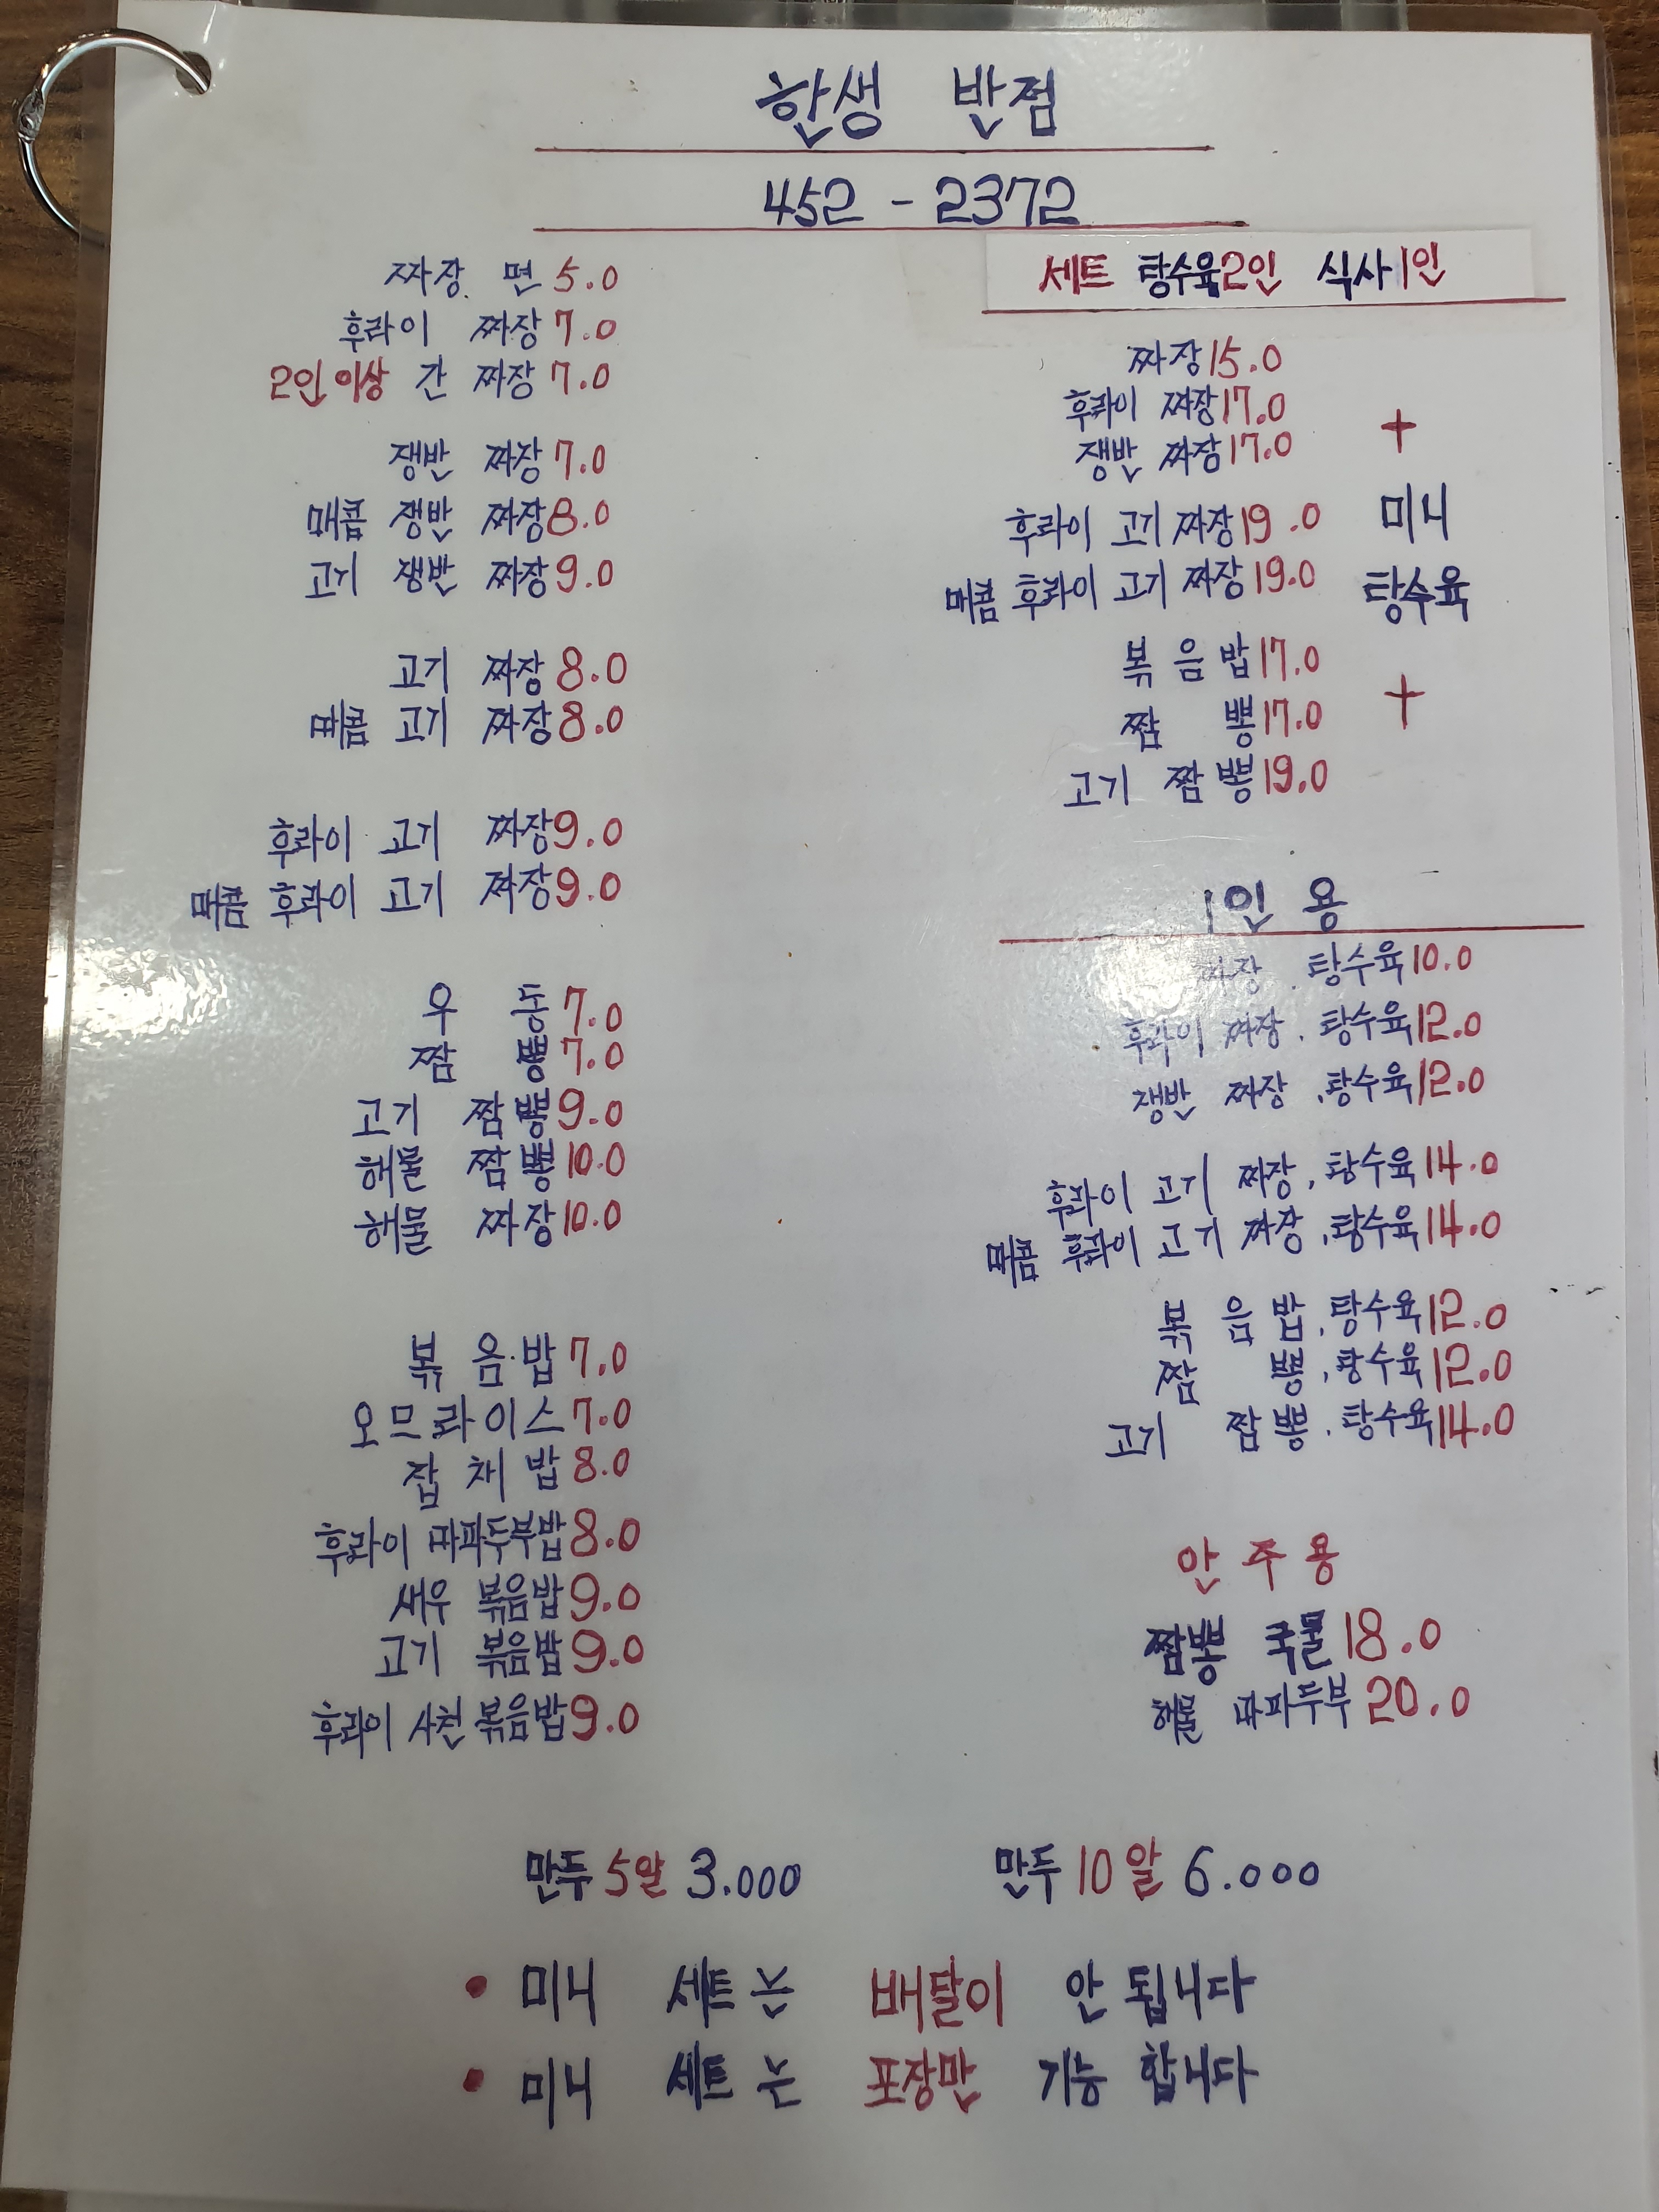 한생 반점
452 - 2372
짜장 면 5.0
후라이 짜장 7.0
2인 이상 간 짜장 7.0
쟁반 짜장 7.0
매콤 쟁반 짜장 8.0
고기 쟁반 짜장 9.0
고기 짜장 8.0
매콤 고기 짜장 8.0
후라이 고기 짜장 9.0
매콤 후라이 고기 짜장 9.0
우 동 7.0
짬 뽕 7.0
고기 짬뽕 9.0
해물 짬뽕 10.0
해물 짜장 10.0
볶 음 밥 7.0
오므라이스 7.0
잡 채 밥 8.0
후라이 마파두부밥 8.0
새우 볶음밥 9.0
고기 볶음밥 9.0
후라이 사천 볶음밥 9.0
세트 탕수육2인 식사1인
짜장 15.0
후라이 짜장 17.0
쟁반 짜장 17.0
후라이 고기 짜장 19.0
매콤 후라이 고기 짜장 19.0
볶 음 밥 17.0
짬 뽕 17.0
고기 짬뽕 19.0
+
미니
탕수육
+
1인 용
짜장 . 탕수육 10.0
후라이 짜장 . 탕수육 12.0
쟁반 짜장 . 탕수육 12.0
후라이 고기 짜장 , 탕수육 14.0
매콤 후라이 고기 짜장 , 탕수육 14.0
볶 음 밥 , 탕수육 12.0
짬 뽕 , 탕수육 12.0
고기 짬뽕 . 탕수육 14.0
안 주 용
짬뽕 국물 18.0
해물 마파두부 20.0
만두 5알 3.000
만두 10알 6.000
• 미니 세트는 배달이 안 됩니다
• 미니 세트는 포장만 가능 합니다